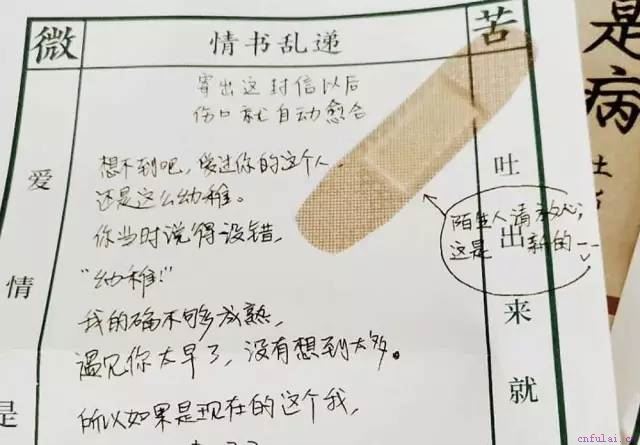 微
情书乱递
苦
寄出这封信以后
伤口就自动愈合
想不到吧,伤过你的这个人,
还是这么幼稚。
你当时说得没错,
“幼稚!”
我的确不够成熟,
遇见你太早了,没有想到太多。
所以如果是现在的这个我,
爱
情
是
吐
出
来
就
陌生人请放心;
这是新的--
是
病
吐
cnfulai.c